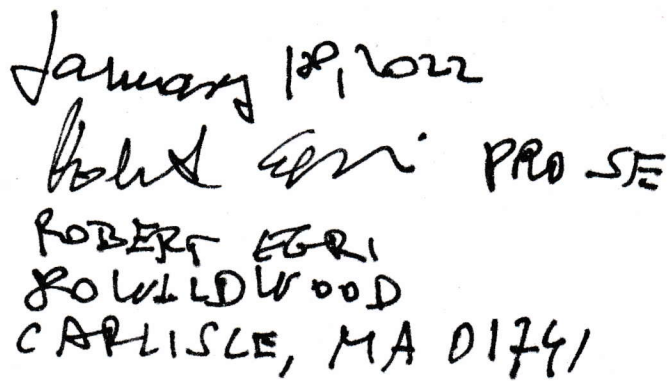 January 18, 2022
Robert Egri PRO SE
ROBERT EGRI
80 WILDWOOD
CARLISLE, MA 01741